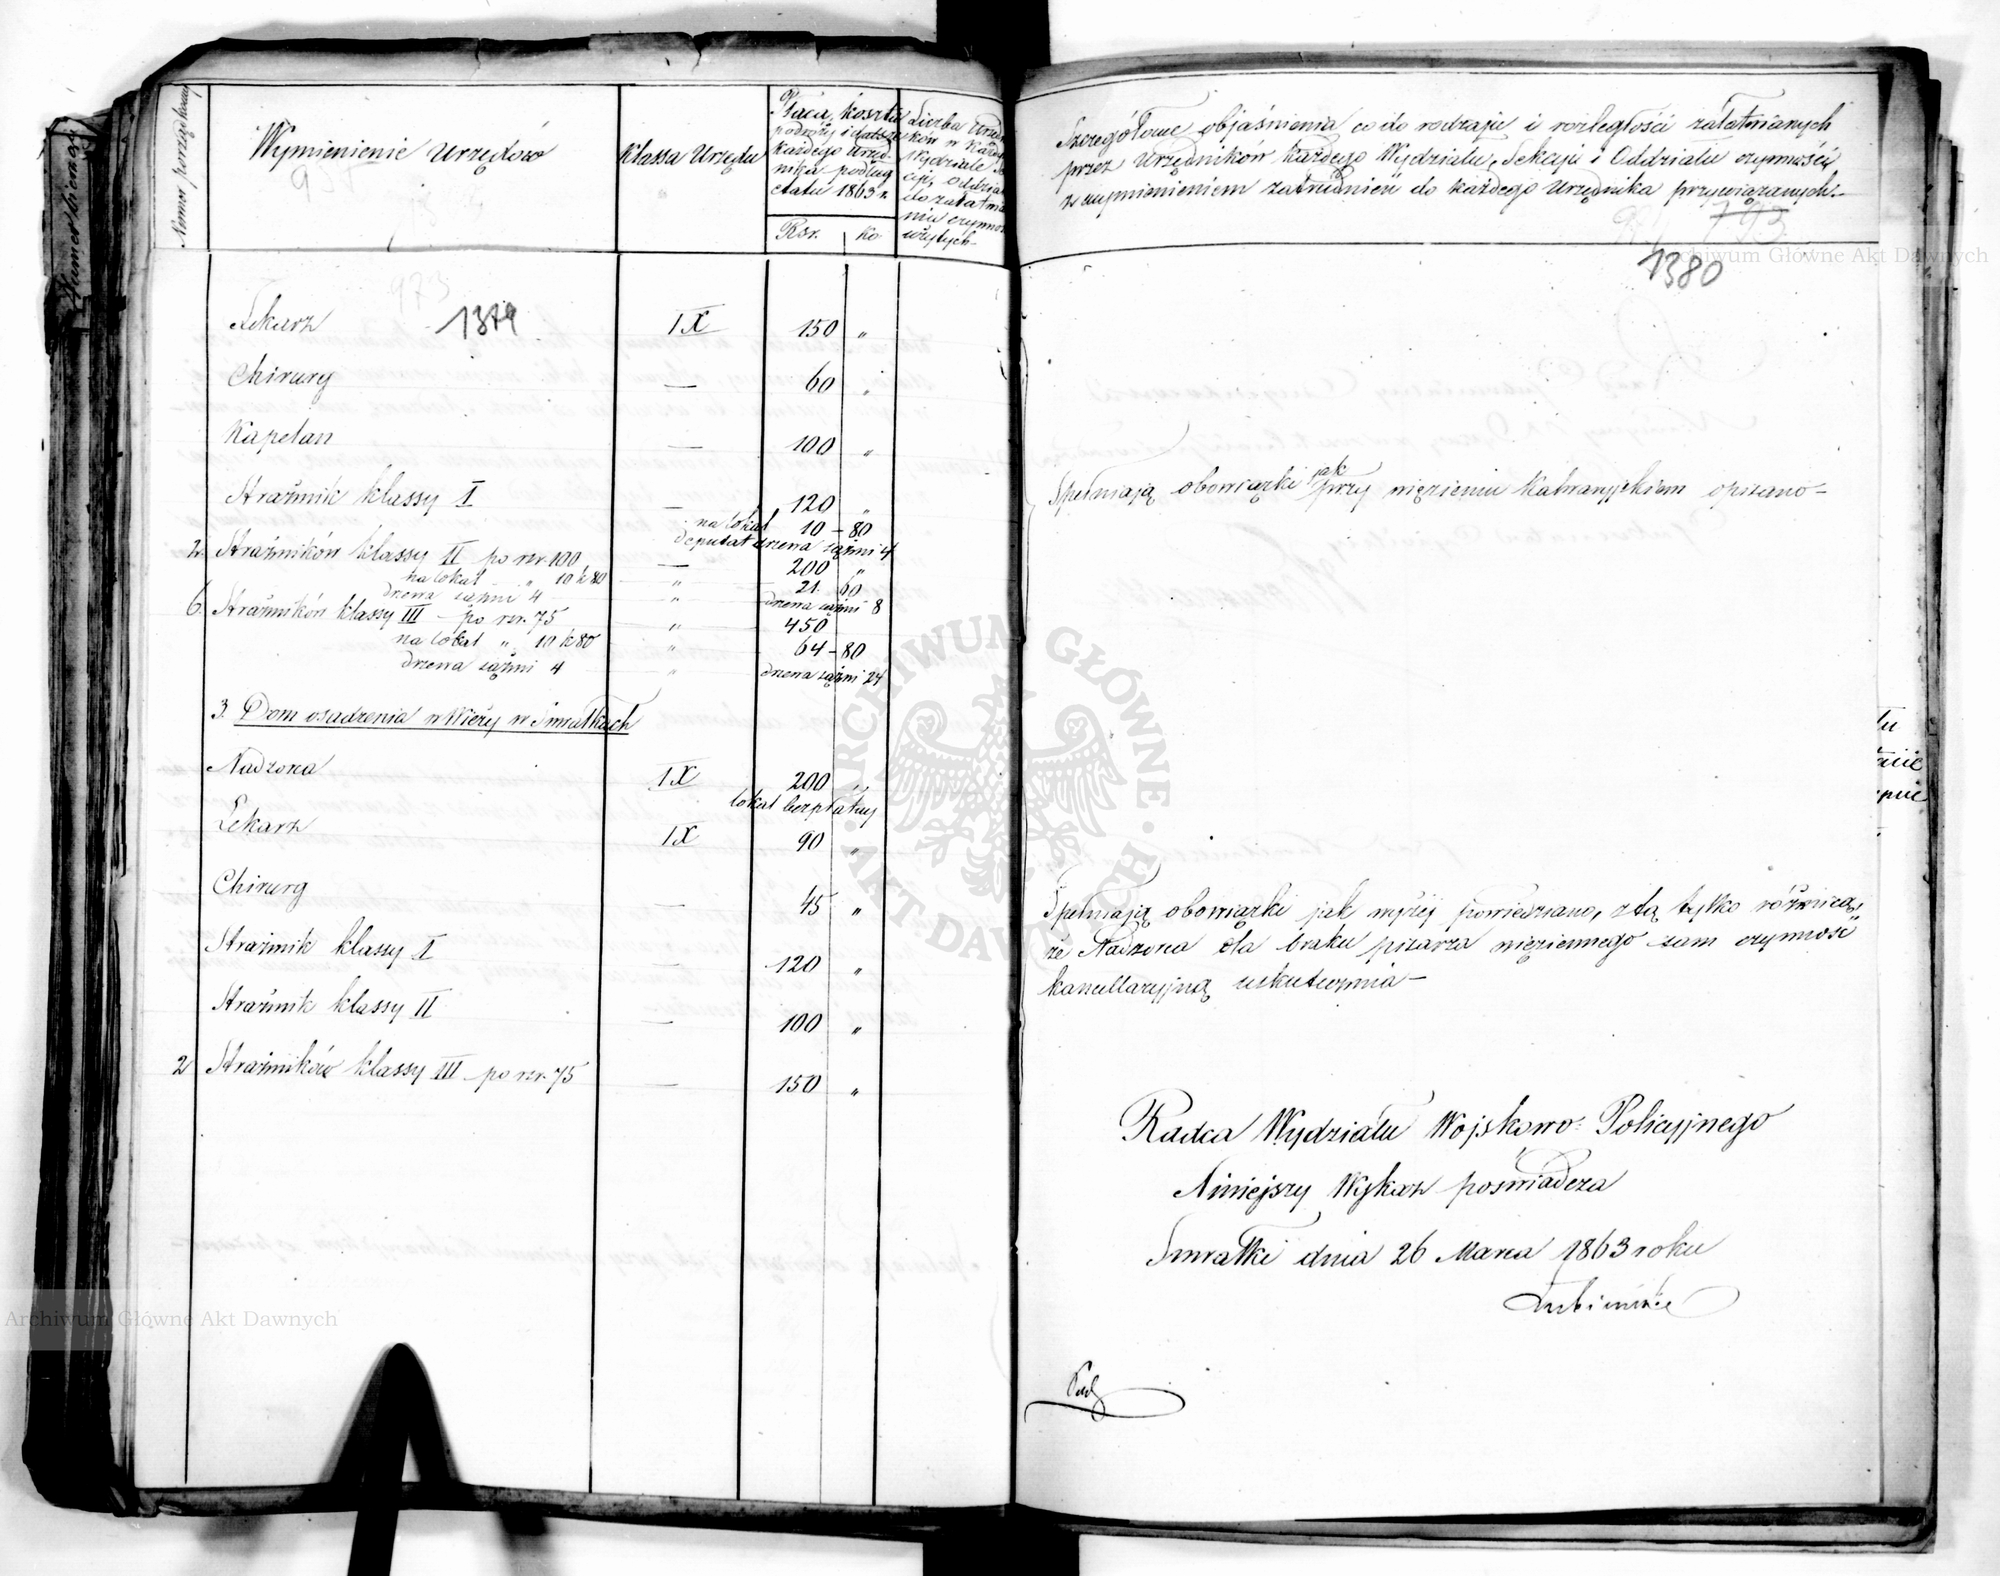 Numer porządkowy
Wymienienie Urzędów
Klassa Urzędu
Płaca, koszta
podróży i dalsze
każdego Urzę-
dnika podług
etatu 1863 r.
Rsr. ko
Liczba Urzęd
ków w każdy
Wydziale Se
cji, Oddzia
do załatwia
nia czynnoś
użytych
973
1379
Lekarz IX 150 „
Chirurg — 60 „
Kapelan — 100 „
Strażnik klassy I — 120 „
na lokal 10 – 80
deputat drzewa sążni 4
2. Strażników klassy II po rsr. 100 — 200 „
na lokal „ 10 k 80 „ 21. 60
drzewa sążni 4 „ drzewa sążni 8
6. Strażników klassy III – po rsr. 75 „ 450
na lokal „ 10 k 80 „ 64 – 80
drzewa sążni 4 „ drzewa sążni 24
3. Dom osadzenia w Wieży w Suwałkach
Nadzorca IX 200 „
lokal bezpłatny
Lekarz IX 90 „
Chirurg — 45 „
Strażnik klassy I — 120 „
Strażnik klassy II — 100 „
2 Strażników klassy III – po rsr. 75 — 150 „
Szczegółowe objaśnienia co do rodzaju i rozległości załatwianych
przez Urzędników każdego Wydziału, Sekcji i Oddziału czynności
z wymienieniem zatrudnień do każdego Urzędnika przywiązanych.
793
1380
Spełniają obowiązki jak przy więzieniu Kalwaryjskiem opisano –
Spełniają obowiązki jak wyżej powiedziano, z tą tylko różnicą,
że Nadzorca dla braku pisarza więziennego sam czynność
kancellaryjną uskutecznia –
Radca Wydziału Wojskowo-Policyjnego
Niniejszy Wykaz poświadcza
Suwałki dnia 26 Marca 1863 roku
Archiwum Główne Akt Dawnych
ARCHIWUM GŁÓWNE AKT DAWNYCH
Archiwum Główne Akt Dawnych